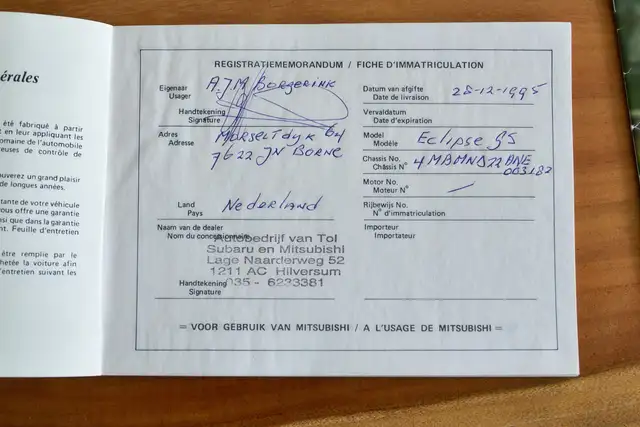 érales
été fabriqué à partir
t en leur appliquant les
omaine de l'automobile
euses de contrôle de
uverez un grand plaisir
de longues années.
tante de votre véhicule
ous offre une garantie
si que dans la garantie
nt. Feuille d'entretien
être remplie par le
hetée la voiture afin
l'entretien suivant les
REGISTRATIEMEMORANDUM / FICHE D'IMMATRICULATION
Eigenaar
Usager
A.J.M Borgerink
Handtekening
Signature
Adres
Adresse
Morseltdyk 64
7622 JN Borne
Land
Pays
Nederland
Naam van de dealer
Nom du concessionnaire
Autobedrijf van Tol
Subaru en Mitsubishi
Lage Naarderweg 52
1211 AC Hilversum
035 - 6233381
Handtekening
Signature
Datum van afgifte
Date de livraison
28-12-1995
Vervaldatum
Date d'expiration
Model
Modèle
Eclipse GS
Chassis No.
Châssis N°
4 MAMND22ANE
003182
Motor No.
Moteur N°
Rijbewijs No.
N° d'immatriculation
Importeur
Importateur
= VOOR GEBRUIK VAN MITSUBISHI / A L'USAGE DE MITSUBISHI =